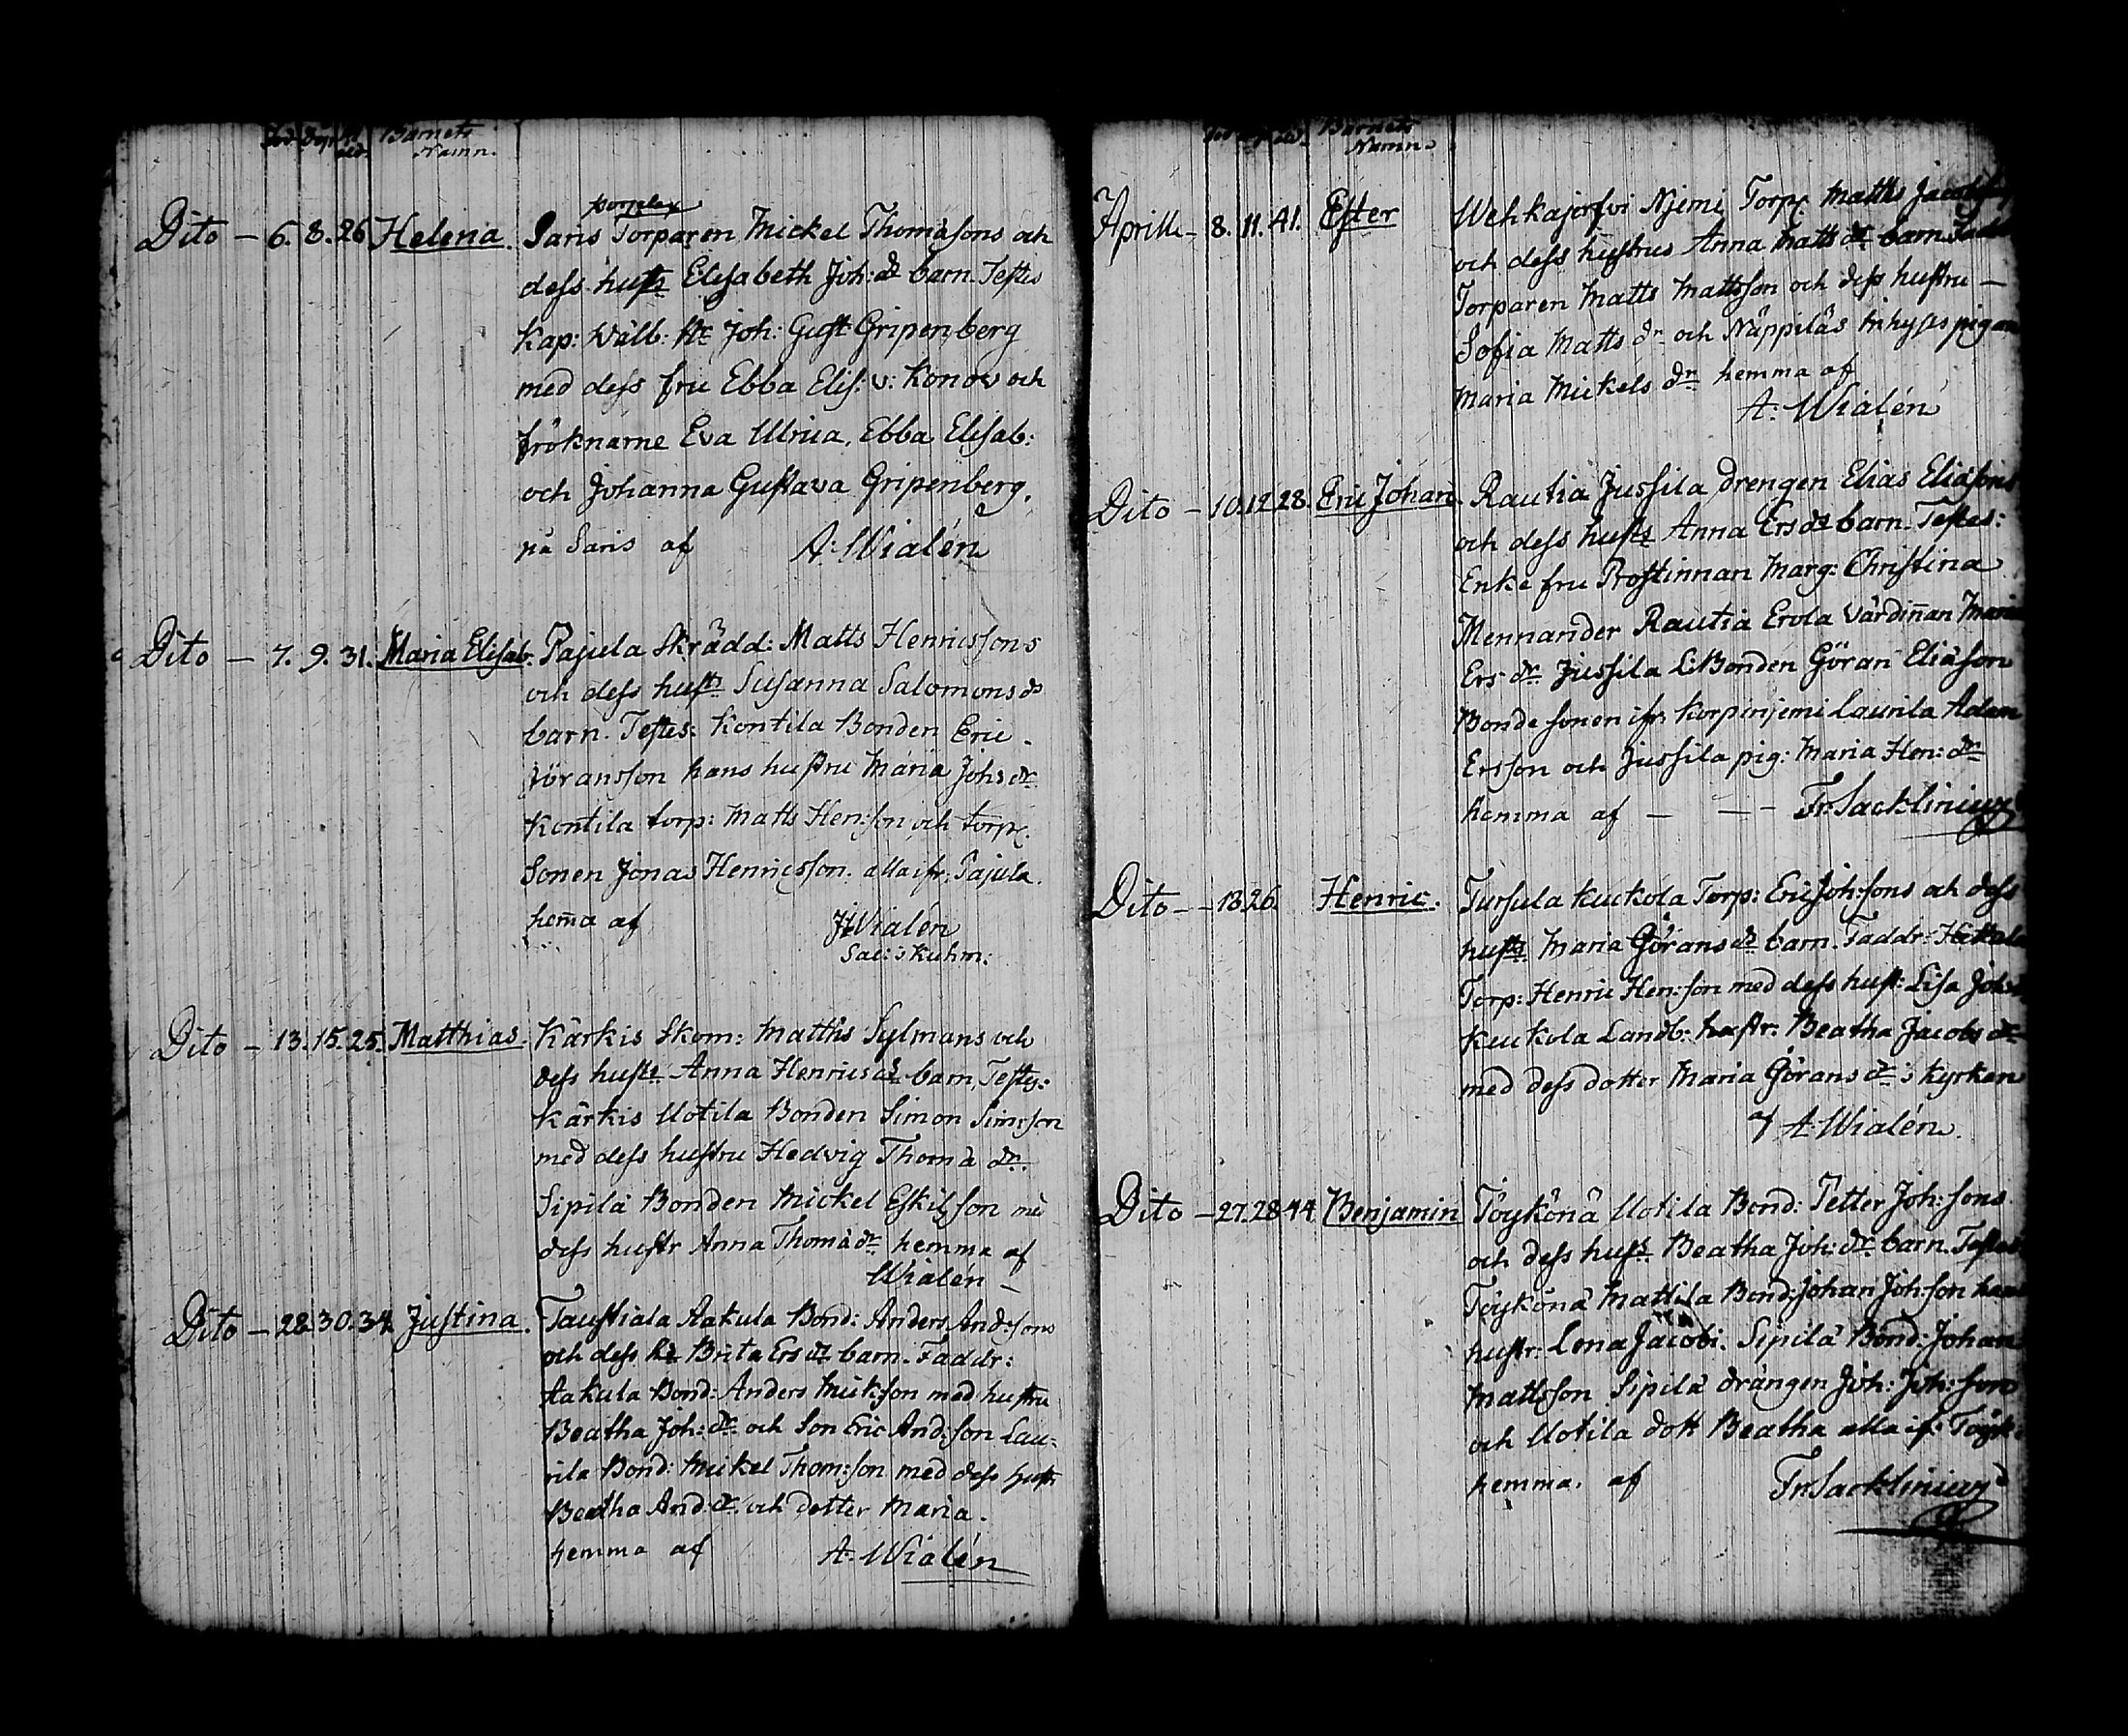 Född Döpt Barnets
Namn.
Dito – 6. 8. 26 Helena.
porrelax
Saris Torparen Mickel Thomäsons och
dess hustr Elisabeth Joh: dr barn. Testes
Kap: Wälb: Hr Joh: Gust Gripenberg
med dess fru Ebba Elis: v: Konow och
fröknarne Eva Ulrica, Ebba Elisab:
och Johanna Gustava Gripenberg.
på Saris af A: Wialén
Dito – 7. 9. 31. Maria Elisab. Pajula Skrädd: Matts Henricssons
och dess hustr Susanna Salomons dr
barn. Testes: Kontila Bonden Eric
Jöransson hans hustru Maria Johs dr
Kontila torp: Matts Hen:son och torp.
Sonen Jonas Henricsson. alla ifr. Pajula.
hem̅a af Wialén
Sac: i Kuhm:
Dito – 13. 15. 25. Matthias. Kärkis Skom: Matths Sylmans och
dess hustr Anna Henrics dr barn, Testes:
Kärkis Uotila Bonden Simon Simsson
med dess hustru Hedvig Thomä dr.
Sipilä Bonden Mickel Eskilsson me
dess hustr Anna Thomä dr hemma af
Wialén –
Dito – 28. 30. 34. Justina. Taustiala Aakula Bond: Anders And:sons
och dess h: Brita Ers dr barn. Faddr:
Aakula Bond: Anders Mick:son med hustru
Beatha Joh: dr och Son Eric And:son Lau-
rila Bond: Mickel Thom:son med dess hustr
Beatha And: dr och dotter Maria.
hemma af A: Wialén
Barnets
Namn.
Aprill – 8. 11. 41. Ester Wehkajerfvi Njemi Torp. Matths
och dess hustrus Anna Matts dr barn
Torparen Matts Mattsson och dess hustru –
Sofia Matts dr och Näppiläs Inhyses pigan
Maria Mickels dr hemma af
A: Wialén
Dito – 10. 12. 28. Eric Johan. Rautia Jussila drengen Elias Eliäsons
och dess hustr Anna Ers dr barn. Testes:
Enke fru Prostinnan Marg: Christina
Mennander Rautia Erola Värdin̅an Maria
Ers dr Jussila L:Bonden Göran Eliäson
Bonde sonen ifr Korpinjemi Laurila Adam
Ersson och Jussila pig: Maria Hen: dr
hemma af – – – Fr: Sacklinius
Dito – – 18 26. Henric. Tursula Kuckola Torp: Eric Joh:sons och dess
hustr Maria Görans dr barn. Faddr:
Torp: Henric Hen:son med dess hust: Lisa Joh:
Kuckola Landb: hustr: Beatha Jacobs dr
med dess dotter Maria Görans dr i kyrkan
af A: Wialén
Dito – 27. 28 44 Benjamin Töykönä Uotila Bond: Petter Joh:sons
och dess hustr Beatha Joh: dr barn. Testes
Töykönä Mattila Bond: Johan Joh:son hans
hustr: Lena Jacobi. Sipilä Bond: Johan
Mattsson Sipilä drängen Joh: Joh:son
och Uotila dott Beatha alla if: Töyk:
hemma. af Fr: Sacklinius